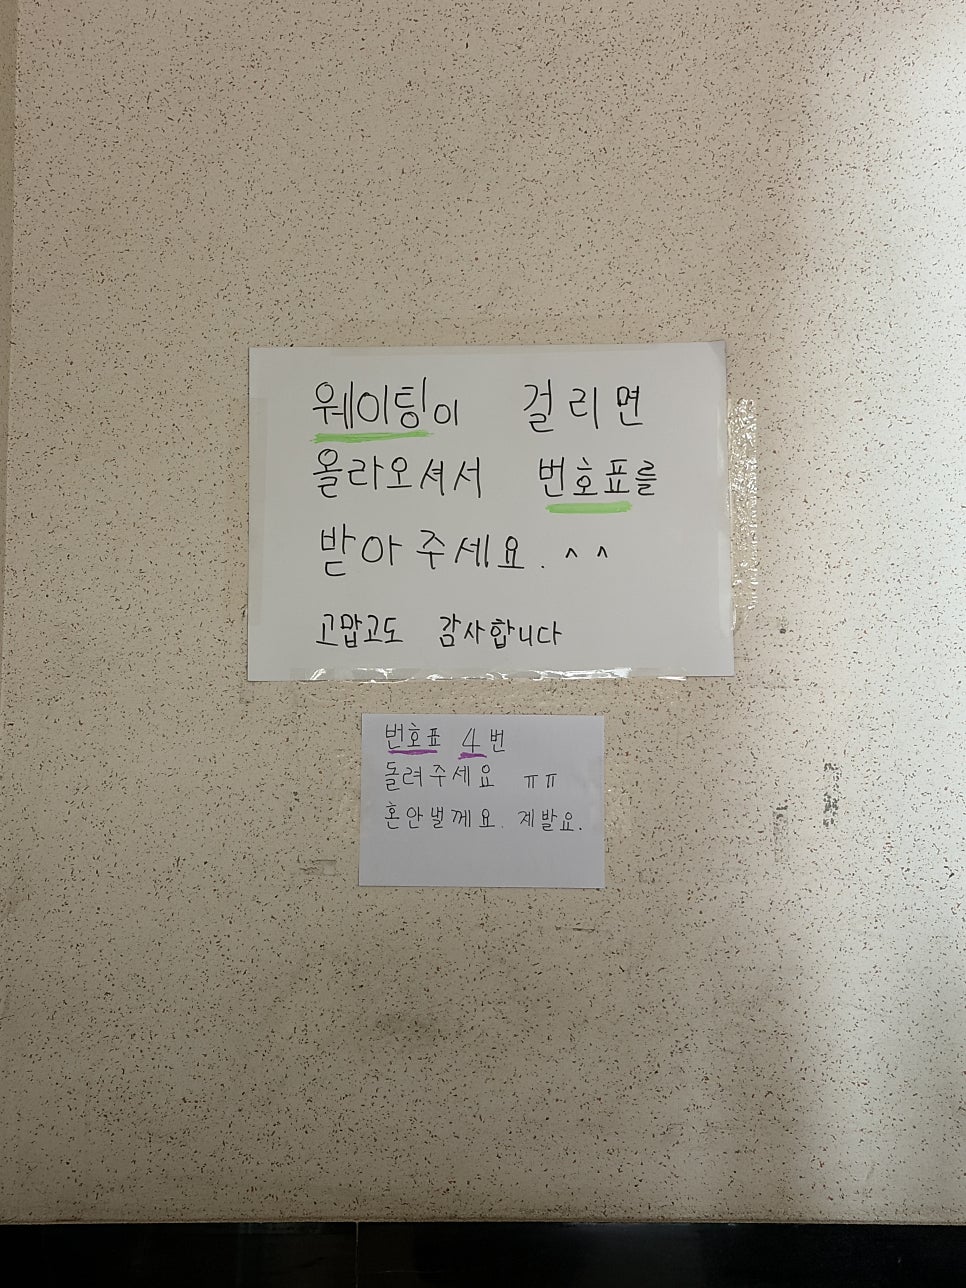 웨이팅이 걸리면
올라오셔서 번호표를
받아주세요. ^^
고맙고도 감사합니다
번호표 4번
돌려주세요 ㅠㅠ
혼안낼께요. 제발요.